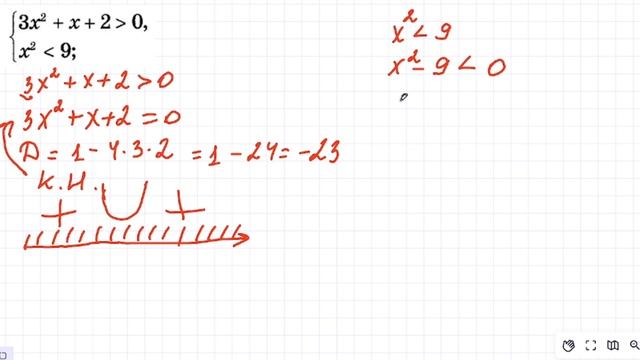 3x² + x + 2 > 0,
x² < 9;
3x² + x + 2 > 0
3x² + x + 2 = 0
D = 1 - 4·3·2 = 1 - 24 = -23
К.Н.
+ +
x² < 9
x² - 9 < 0